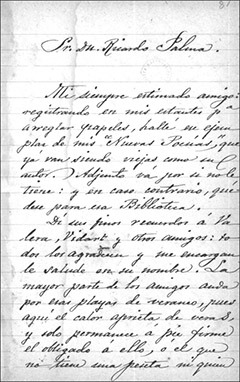 Sr. Dn. Ricardo Palma.
Mi siempre estimado amigo:
registrando en mis estantes pa
arreglar papeles, hallé un ejem
plar de mis "Nuevas Poesías," que
ya van siendo viejas como su
autor. Adjunto va por si no le
tiene: y en caso contrario, que
dese para esa Biblioteca.
Di sus finos recuerdos á Va
lera, Vidart y otros amigos: to
dos los agradecen y me encargan
le salude en su nombre. La
mayor parte de los amigos anda
por esas playas de veraneo, pues
aquí el calor aprieta de veras,
y solo permanece a pie firme
el obligado a ello, ó el que
no tiene una peseta ni quien